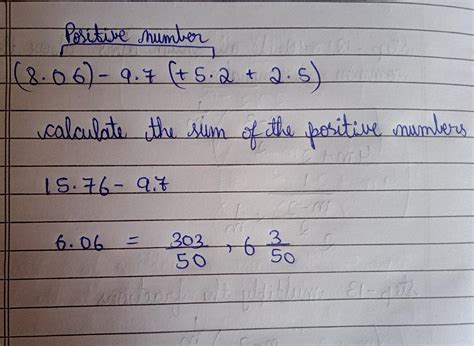 Positive number
(8.06) - 9.7 (+5.2 + 2.5)
calculate the sum of the positive numbers
15.76 - 9.7
6.06 = 303/50 , 6 3/50